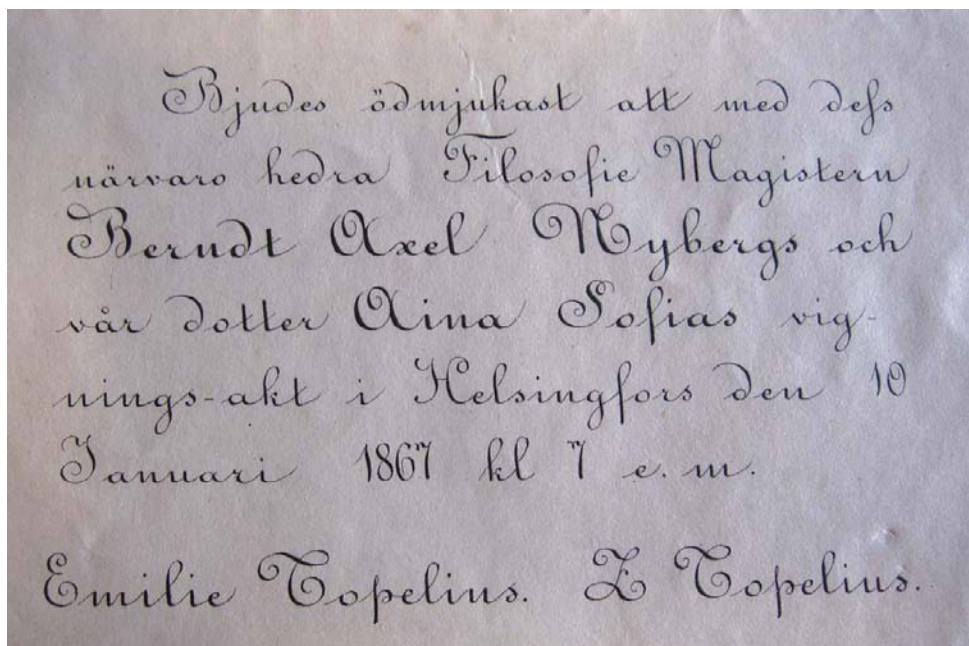 Bjudes ödmjukast att med dess
närvaro hedra Filosofie Magistern
Berndt Axel Nybergs och
vår dotter Aina Sofias vig-
nings-akt i Helsingfors den 10
Januari 1867 kl 7 e. m.
Emilie Topelius. Z Topelius.